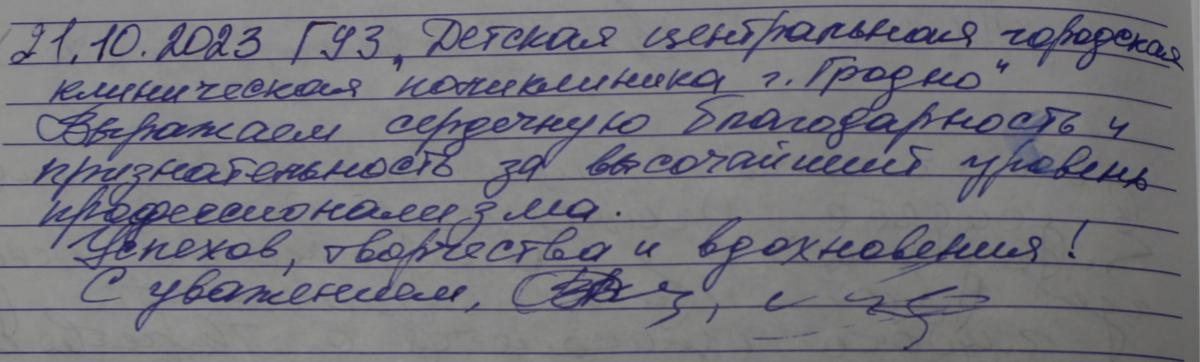 21.10.2023 ГУЗ „Детская центральная городская
клиническая поликлиника г. Гродно“
Выражаем сердечную благодарность и
признательность за высочайший уровень
профессионализма.
Успехов, творчества и вдохновения!
С уважением,